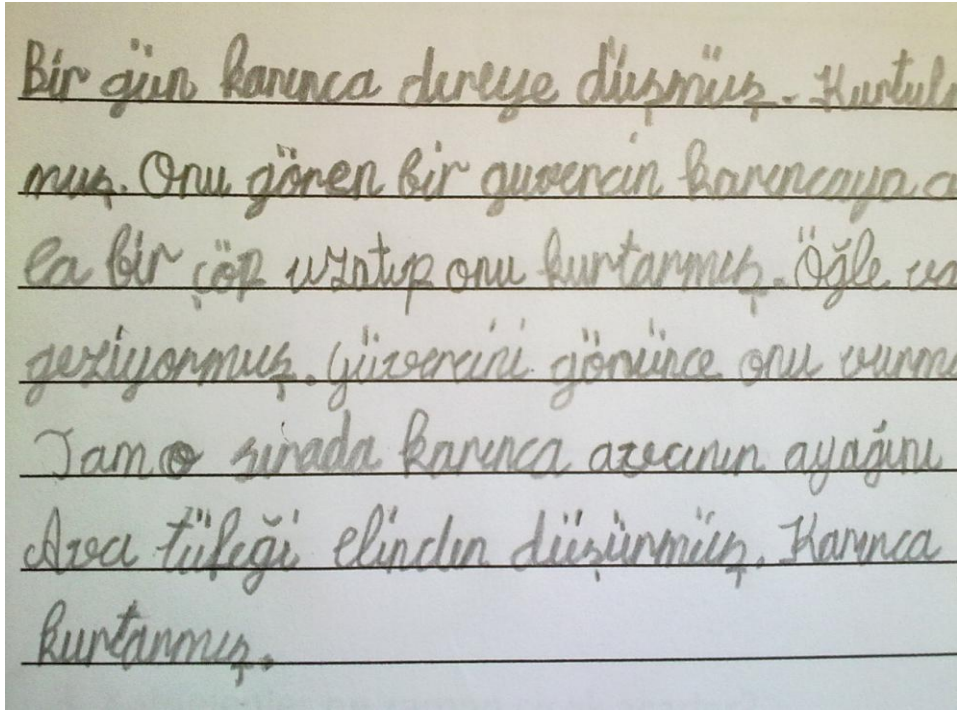 Bir gün karınca dereye düşmüş. Kurtul
muş. Onu gören bir guvercin karıncaya
la bir çöp uzatıp onu kurtarmış. Öğle
geziyormuş. Güvercini görünce onu vurm
Tam o sırada karınca avcının ayağını
Avcı tüfeği elinden düşürmüş. Karınca
kurtarmış.